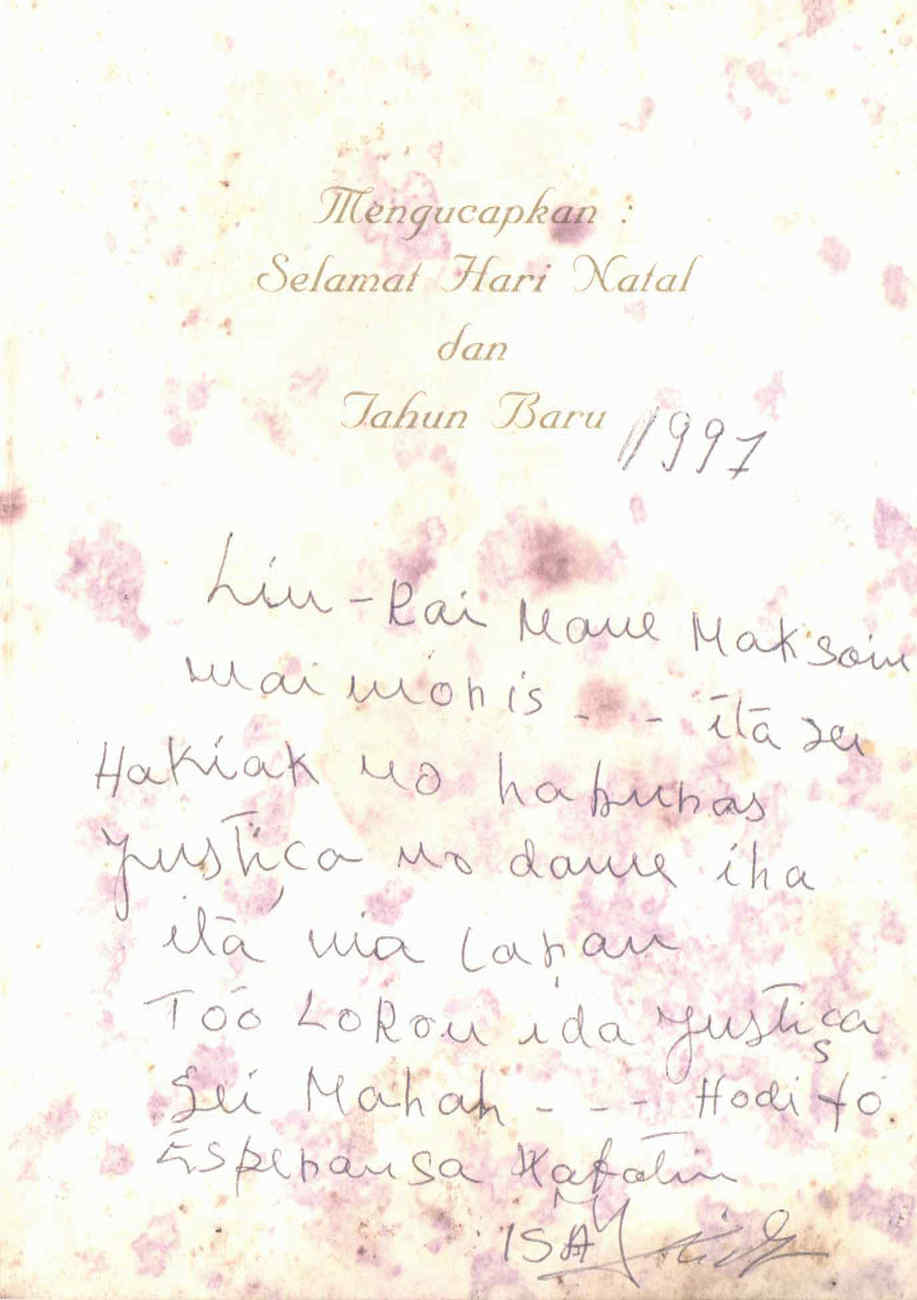 Mengucapkan :
Selamat Hari Natal
dan
Tahun Baru 1997
Liu-Rai Mane Maksoin
mai moris - - - ita sei
Hakiak no haburas
justiça no dame iha
ita nia laran
Tóó Loron ida justiça
Sei Mahah - - - Hodi fó
Esperansa
ISA